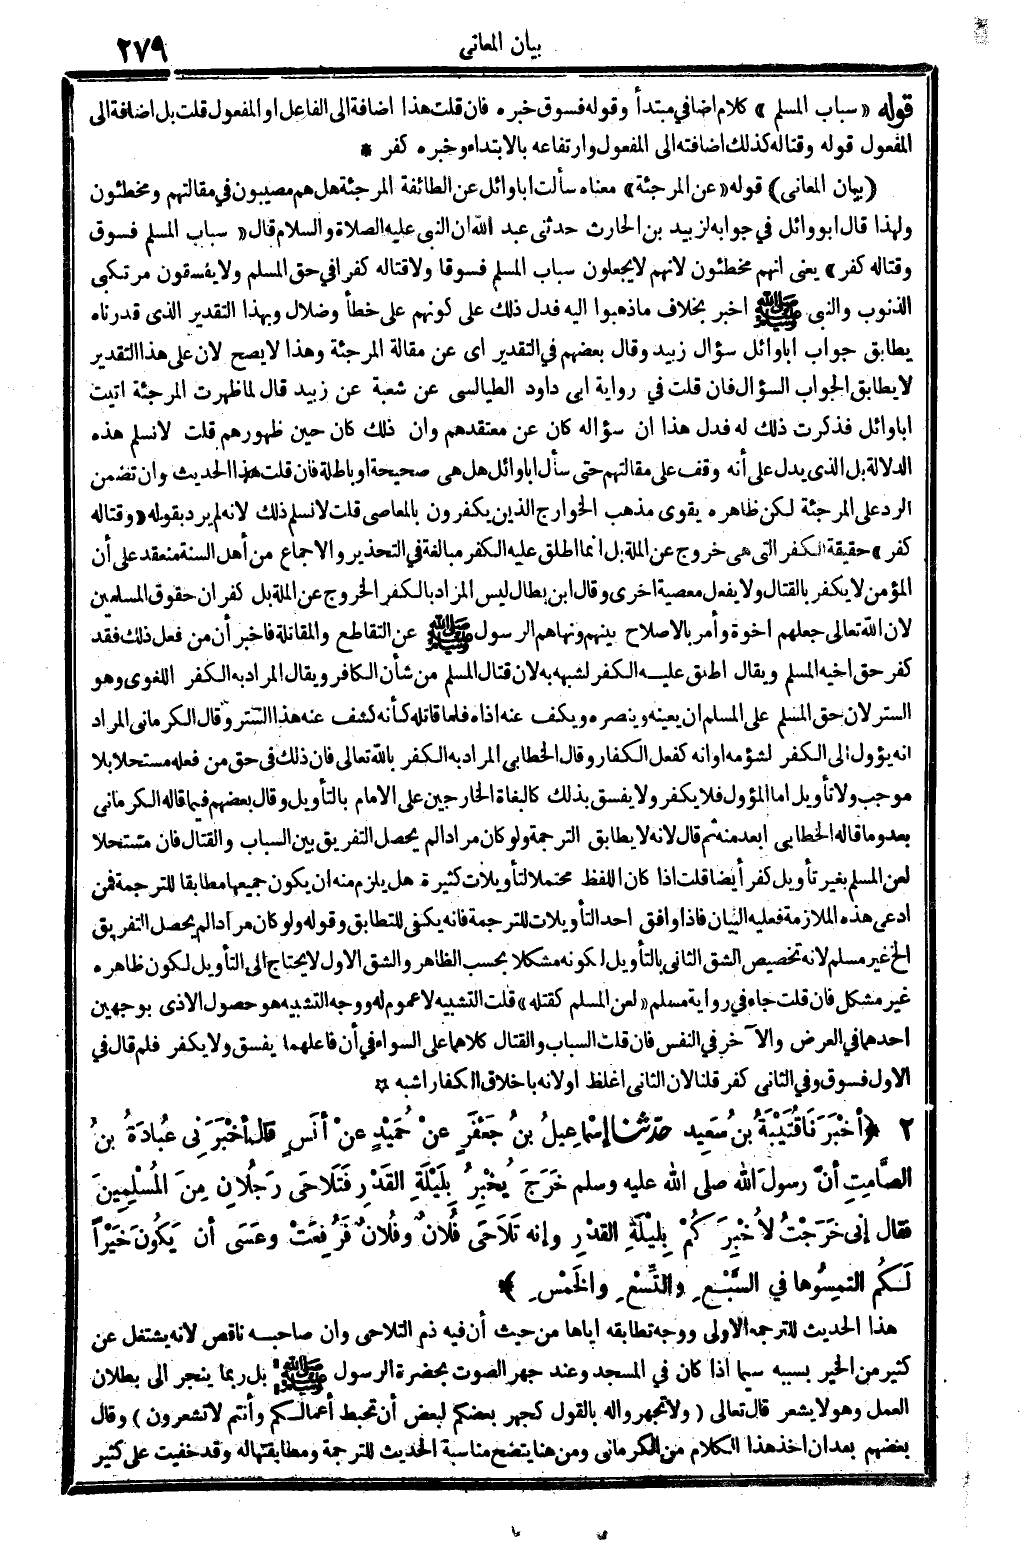 بيان المعاني ٢٧٩
قوله « سباب المسلم » كلام اضافي مبتدأ وقوله فسوق خبره فان قلت هذا اضافة الى الفاعل او المفعول قلت بل اضافة الى
المفعول قوله وقتاله كذلك اضافته الى المفعول وارتفاعه بالابتداء وخبره كفر *
(بيان المعانى) قوله « عن المرجئة » معناه سألت اباوائل عن الطائفة المرجئة هل هم مصيبون في مقالتهم ومخطئون
ولهذا قال ابو وائل في جوابه لزبيد بن الحارث حدثنى عبد الله ان النبى عليه الصلاة والسلام قال « سباب المسلم فسوق
وقتاله كفر » يعنى انهم مخطئون لانهم لايجعلون سباب المسلم فسوقا ولاقتاله كفرا في حق المسلم ولايفسقون مرتكبى
الذنوب والنبى ﷺ اخبر بخلاف ماذهبوا اليه فدل ذلك على كونهم على خطأ وضلال وبهذا التقدير الذى قدرناه
يطابق جواب اباوائل سؤال زبيد وقال بعضهم في التقدير اى عن مقالة المرجئة وهذا لايصح لان على هذا التقدير
لايطابق الجواب السؤال فان قلت في رواية ابى داود الطيالسى عن شعبة عن زبيد قال لما ظهرت المرجئة اتيت
اباوائل فذكرت ذلك له فدل هذا ان سؤاله كان عن معتقدهم وان ذلك كان حين ظهورهم قلت لانسلم هذه
الدلالة بل الذى يدل على أنه وقف على مقالتهم حتى سأل اباوائل هل هى صحيحة او باطلة فان قلت هذا الحديث وان تضمن
الرد على المرجئة لكن ظاهره يقوى مذهب الخوارج الذين يكفرون بالمعاصى قلت لانسلم ذلك لانه لم يرد بقوله « وقتاله
كفر » حقيقة الكفر التى هى خروج عن الملة بل انما اطلق عليه الكفر مبالغة في التحذير والاجماع من أهل السنة منعقد على أن
المؤمن لايكفر بالقتال ولا بفعل معصية اخرى وقال ابن بطال ليس المراد بالكفر الخروج عن الملة بل كفران حقوق المسلمين
لان الله تعالى جعلهم اخوة وأمر بالاصلاح بينهم ونهاهم الرسول ﷺ عن التقاطع والمقاتلة فاخبر أن من فعل ذلك فقد
كفر حق اخيه المسلم ويقال اطلق عليه الكفر لشبهه به لان قتال المسلم من شأن الكافر ويقال المراد به الكفر اللغوى وهو
الستر لان حق المسلم على المسلم ان يعينه وينصره ويكف عنه اذاه فلما قاتله كأنه كشف عنه هذا الستر وقال الكرمانى المراد
انه يؤول الى الكفر لشؤمه او انه كفعل الكفار وقال الخطابى المراد به الكفر بالله تعالى فان ذلك في حق من فعله مستحلا بلا
موجب ولا تأويل اما المؤول فلا يكفر ولا يفسق بذلك كالبغاة الخارجين على الامام بالتأويل وقال بعضهم فيما قاله الكرمانى
بعد وما قاله الخطابى ابعد منه ثم قال لانه لايطابق الترجمة ولو كان مرادا لم يحصل التفريق بين السباب والقتال فان مستحلا
لعن المسلم بغير تأويل كفر أيضا قلت اذا كان اللفظ محتملا لتأويلات كثيرة هل يلزم منه ان يكون جميعها مطابقا للترجمة فمن
ادعى هذه الملازمة فعليه البيان فاذا وافق احد التأويلات للترجمة فانه يكفى للتطابق وقوله ولو كان مرادا لم يحصل التفريق
الخ غير مسلم لانه تخصيص الشق الثانى بالتأويل لكونه مشكلا بحسب الظاهر والشق الاول لايحتاج الى التأويل لكون ظاهره
غير مشكل فان قلت جاء في رواية مسلم « لعن المسلم كقتله » قلت التشبيه لاعموم له ووجه التشبيه هو حصول الاذى بوجهين
احدهما في العرض والآخر في النفس فان قلت السباب والقتال كلاهما على السواء في أن فاعلهما يفسق ولايكفر فلم قال في
الاول فسوق وفي الثانى كفر قلنا لان الثانى اغلظ او لانه باخلاق الكفار اشبه ✩
٢ ﴿ أَخْبَرَنَا قُتَيْبَةُ بنُ سَعِيدٍ حَدَّثَنَا إِسْمَاعِيلُ بنُ جَعْفَرٍ عَنْ حُمَيْدٍ عَنْ أَنَسٍ قَالَ أَخْبَرَنِى عُبَادَةُ بنُ
الصَّامِتِ أَنَّ رسولَ الله صلى الله عليه وسلم خَرَجَ يُخْبِرُ بِلَيْلَةِ القَدْرِ فَتَلَاحَى رَجُلَانِ مِنَ المُسْلِمِينَ
فقال إِنى خَرَجْتُ لأُخْبِرَكُمْ بِلَيْلَةِ القدْرِ وإنه تَلَاحَى فُلَانٌ وفُلانٌ فَرُفِعَتْ وعَسَى أن يَكُونَ خَيْرًا
لَكُم التمِسُوها في السَّبْعِ والتِّسْعِ والخَمْسِ ﴾
هذا الحديث للترجمة الاولى ووجه تطابقه اياها من حيث أن فيه ذم التلاحى وان صاحبه ناقص لانه يشتغل عن
كثير من الخير بسببه سيما اذا كان في المسجد وعند جهر الصوت بحضرة الرسول ﷺ بل ربما ينجر الى بطلان
العمل وهو لايشعر قال تعالى ( ولا تجهروا له بالقول كجهر بعضكم لبعض أن تحبط أعمالكم وأنتم لاتشعرون ) وقال
بعضهم بعد ان اخذ هذا الكلام من الكرمانى ومن هنا يتضح مناسبة الحديث للترجمة ومطابقتها له وقد خفيت على كثير